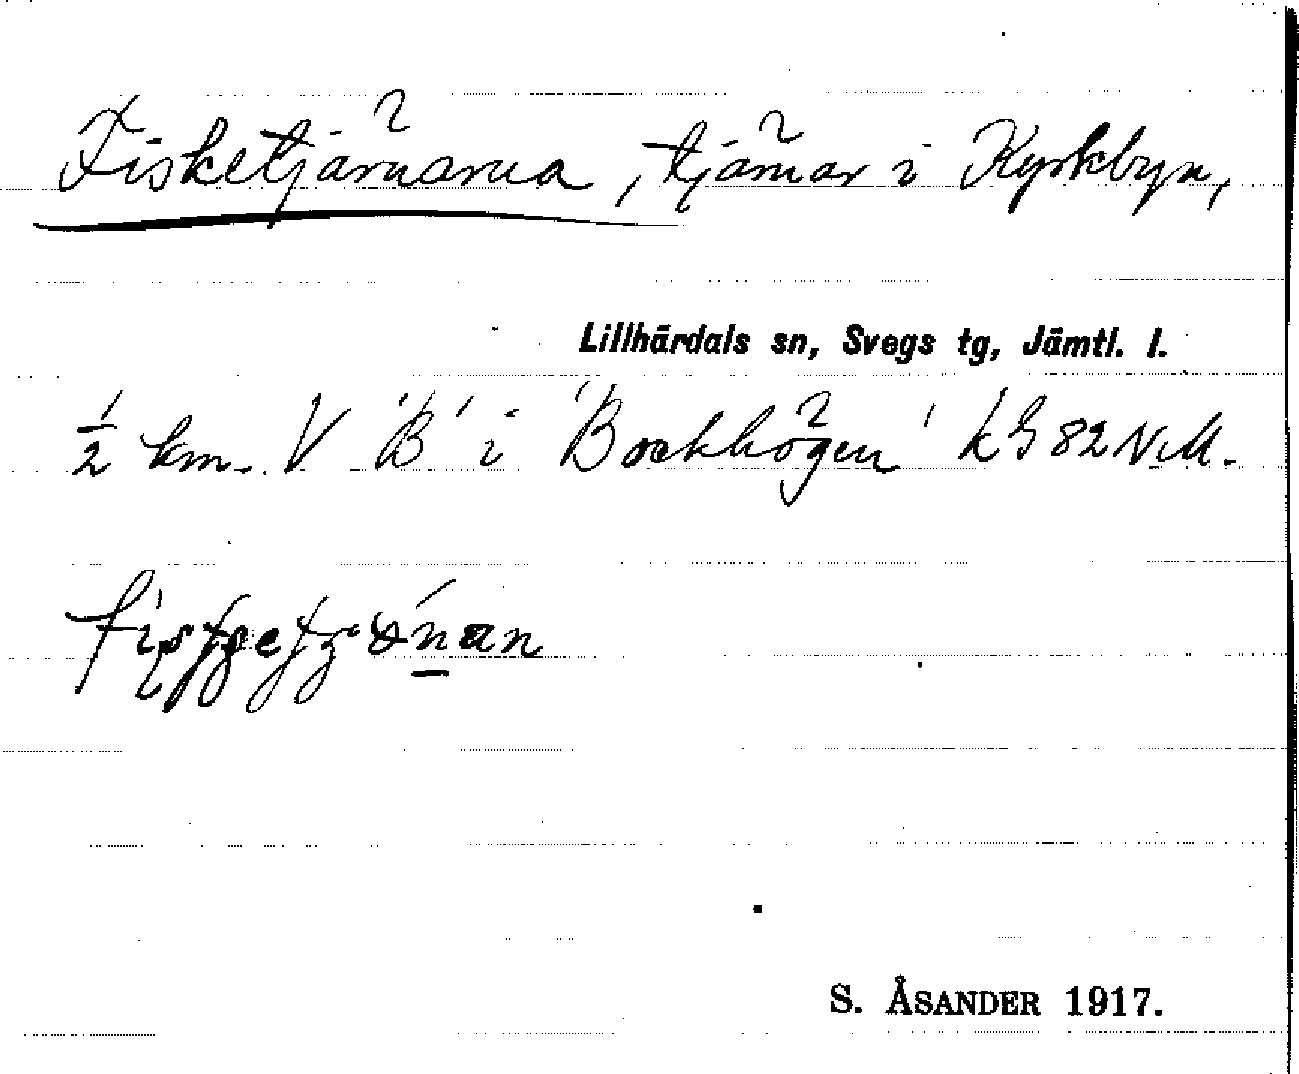 Fisketjärnarna, tjärnar i Kyrkbyn,
Lillhärdals sn, Svegs tg, Jämtl. l.
½ km. V 'B' i 'Bockhögen' kG 82 N.M.
S. ÅSANDER 1917.